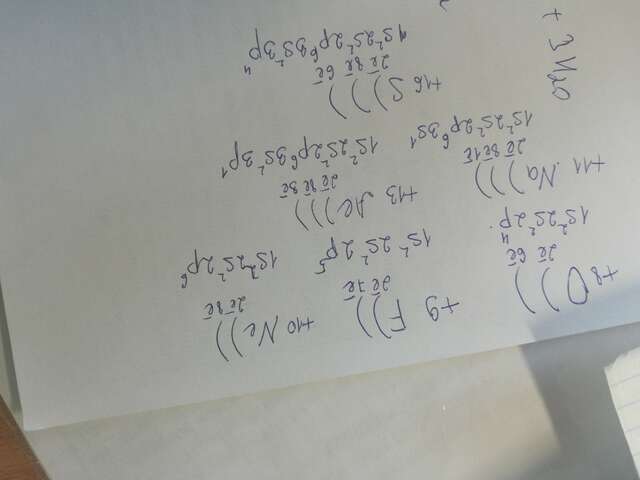 +8 O))
2ē 6ē
1s²2s²2p⁴.
+9 F))
2ē 7ē
1s²2s²2p⁵
+10 Ne))
2ē 8ē
1s²2s²2p⁶
+11 Na)))
2ē 8ē 1ē
1s²2s²2p⁶3s¹
+13 Al)))
2ē 8ē 3ē
1s²2s²2p⁶3s²3p¹
+16 S)))
2ē 8ē 6ē
1s²2s²2p⁶3s²3p⁴
+ 3H₂O